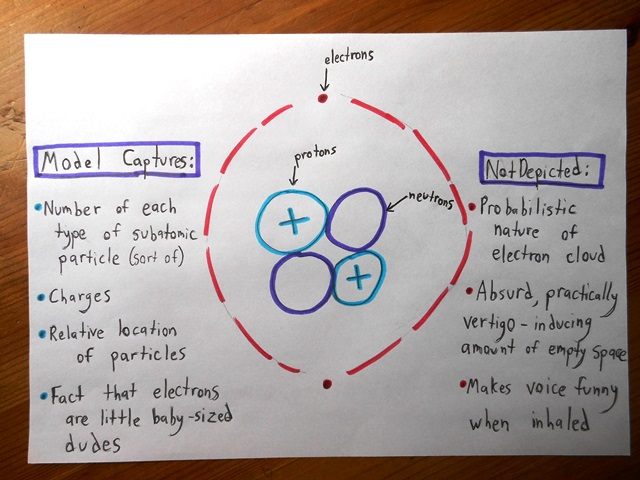 electrons
protons
neutrons
+
+
Model Captures:
Number of each
type of subatomic
particle (sort of)
Charges
Relative location
of particles
Fact that electrons
are little baby-sized
dudes
Not Depicted:
Probabilistic
nature of
electron cloud
Absurd, practically
vertigo-inducing
amount of empty space
Makes voice funny
when inhaled